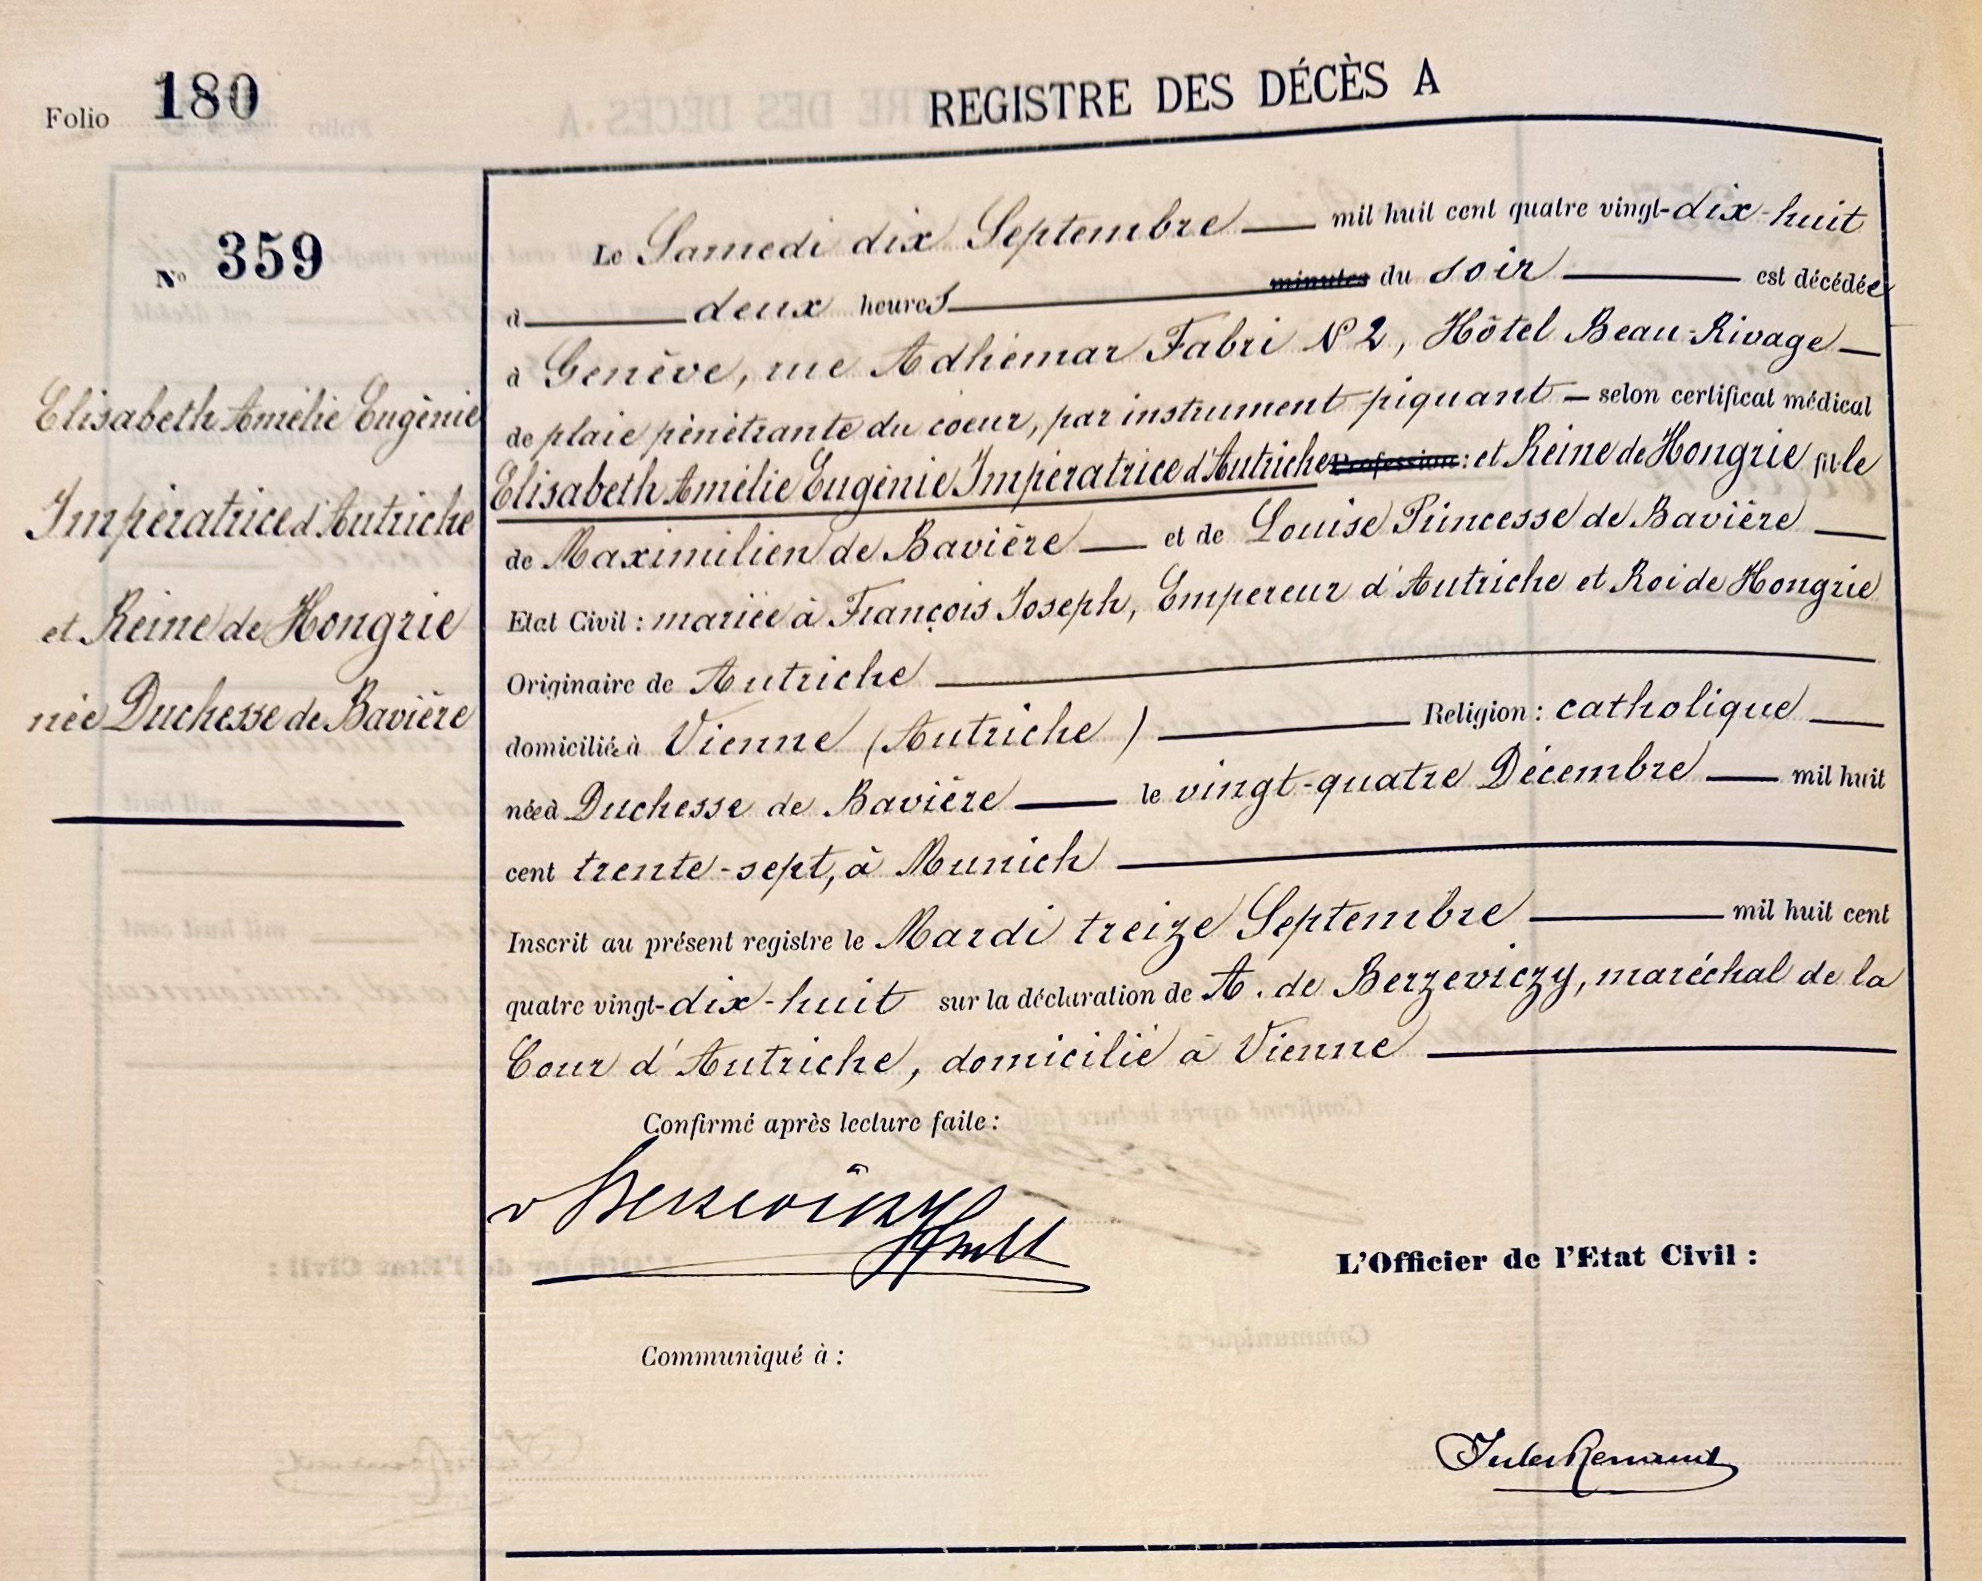 Folio 180
REGISTRE DES DÉCÈS A
N° 359
Elisabeth Amélie Eugénie
Impératrice d'Autriche
et Reine de Hongrie
née Duchesse de Bavière
Le Samedi dix Septembre mil huit cent quatre vingt-dix-huit
à deux heures minutes du soir est décédée
à Genève, rue Adhémar Fabri N° 2, Hôtel Beau-Rivage
de plaie pénétrante du coeur, par instrument piquant — selon certificat médical
Elisabeth Amélie Eugénie Impératrice d'Autriche Profession: et Reine de Hongrie fille
de Maximilien de Bavière et de Louise Princesse de Bavière
Etat Civil: mariée à François Joseph, Empereur d'Autriche et Roi de Hongrie
Originaire de Autriche
domiciliée à Vienne (Autriche) Religion: catholique
née à Duchesse de Bavière le vingt-quatre Décembre mil huit
cent trente-sept, à Munich
Inscrit au présent registre le Mardi treize Septembre mil huit cent
quatre vingt-dix-huit sur la déclaration de A. de Berzeviczy, maréchal de la
Cour d'Autriche, domicilié à Vienne
Confirmé après lecture faite:
v Berzeviczy
L'Officier de l'Etat Civil:
Communiqué à:
Jules Renaud